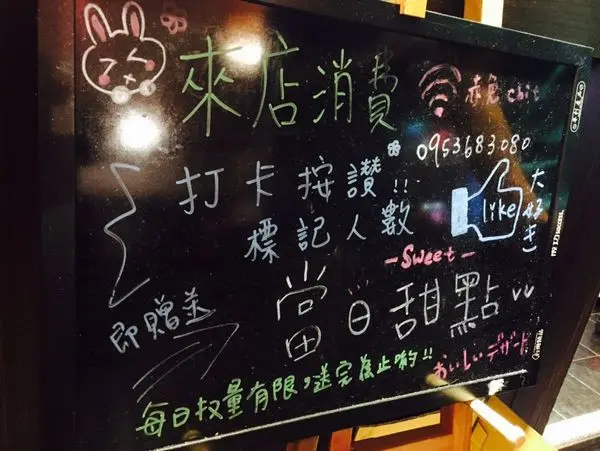 來店消費
赤兔 chit
0953683080
打卡按讚!!
標記人數
like
大好き
-Sweet-
即贈送
當日甜點
每日收量有限,送完為止喲!!
おいしいデザート